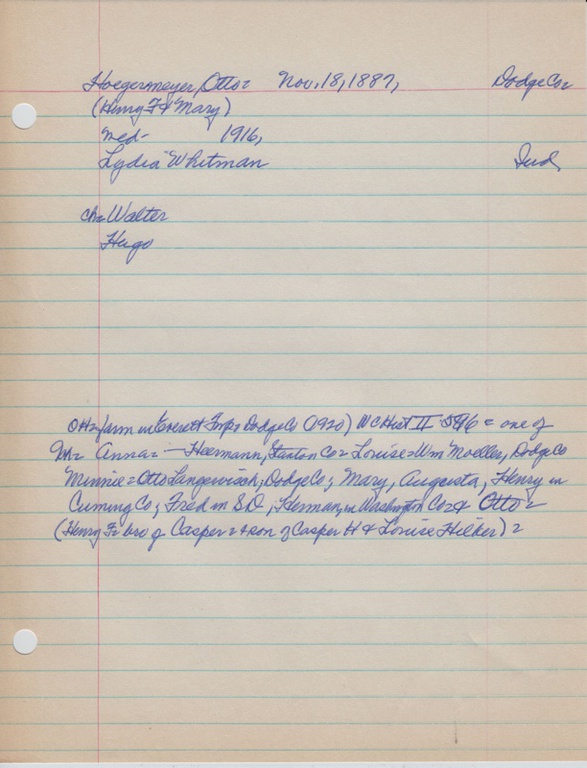 Hoegermeyer, Otto= Nov. 18, 1887, Dodge Co=
(Henry F & Mary)
Med- 1916,
Lydia Whitman Ind,
ch= Walter
Hugo
Ott= farm in Everett Twp= Dodge Co (1920) WC Hist II = one of
Anna= - Heermann, Stanton Co= Louise= Wm Moeller, Dodge Co
Minnie= Otto Langewisch, Dodge Co; Mary, Augusta, Henry in
Cuming Co; Fred in S.D.; Herman, in Washington Co= & Otto=
(Henry F= bro of Casper= & son of Casper H & Louise Hilker) =